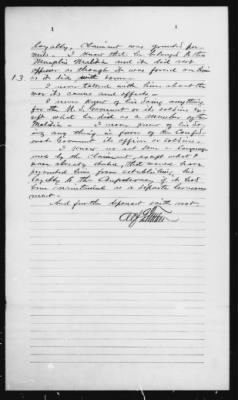 loyalty, Claimant was granted per-
mit. I know that he belonged to the
Memphis Militia and it did not
appear as though it was forced on him
as it did with some.
13 I never talked with him about the
war its causes and effects.
I never knew of his doing anything
for the U.S. Government or its soldiers ex-
cept what he did as a member of the
Militia. I never knew of his do-
ing any thing in favor of the Confed-
erate Government its officers or soldiers.
I know no act done or language
used by the Claimant, except what I
have already stated, that would have
prevented him from establishing his
loyalty to the Confederacy if it had
been maintained as a separate Govern-
ment.
And further deponent saith not.